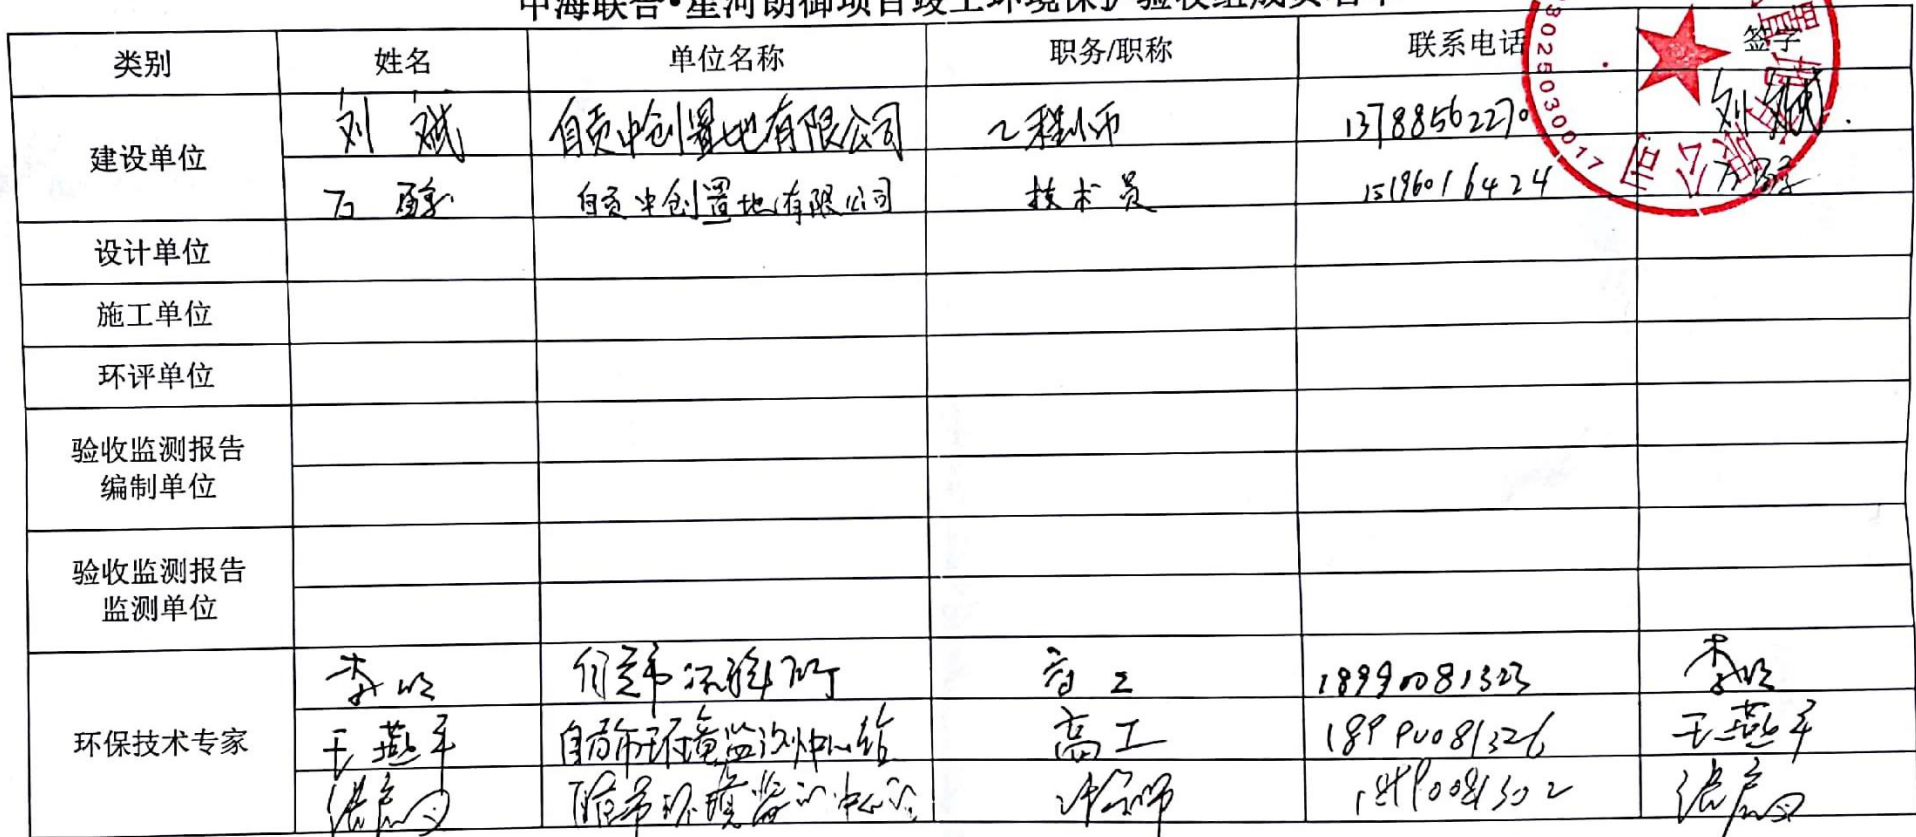 中海联合·星河朗御项目竣工环境保护验收组成员名单
类别 姓名 单位名称 职务/职称 联系电话 签字
建设单位 刘斌 自贡中创置地有限公司 工程师 13788562270 刘斌
石 自贡中创置地有限公司 技术员 15196016424
设计单位
施工单位
环评单位
验收监测报告
编制单位
验收监测报告
监测单位
李 自贡市环科所 高工 18990081323 李
环保技术专家 王燕平 自贡市环境监测中心站 高工 18990081326 王燕平
自贡市环境监测中心站 18990081302
置地有限公司
3025030017